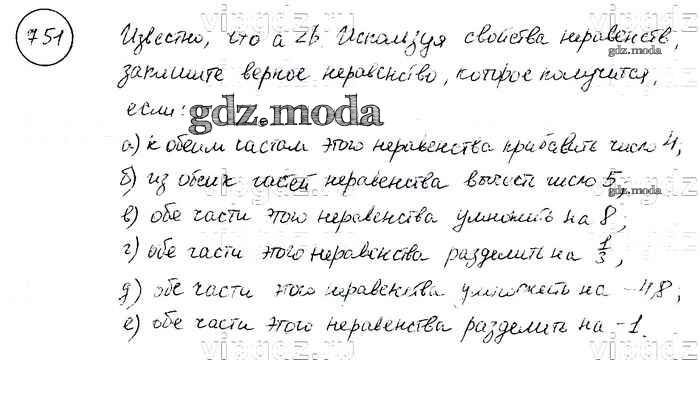 vipgdz.ru
751
Известно, что a < b. Используя свойства неравенств,
gdz.moda
запишите верное неравенство, которое получится,
если:
gdz.moda
а) к обеим частям этого неравенства прибавить число 4;
б) из обеих частей неравенства вычесть число 5;
gdz.moda
в) обе части этого неравенства умножить на 8;
г) обе части этого неравенства разделить на 1/3;
д) обе части этого неравенства умножить на -4,8;
е) обе части этого неравенства разделить на -1.
vipgdz.ru
vipgdz